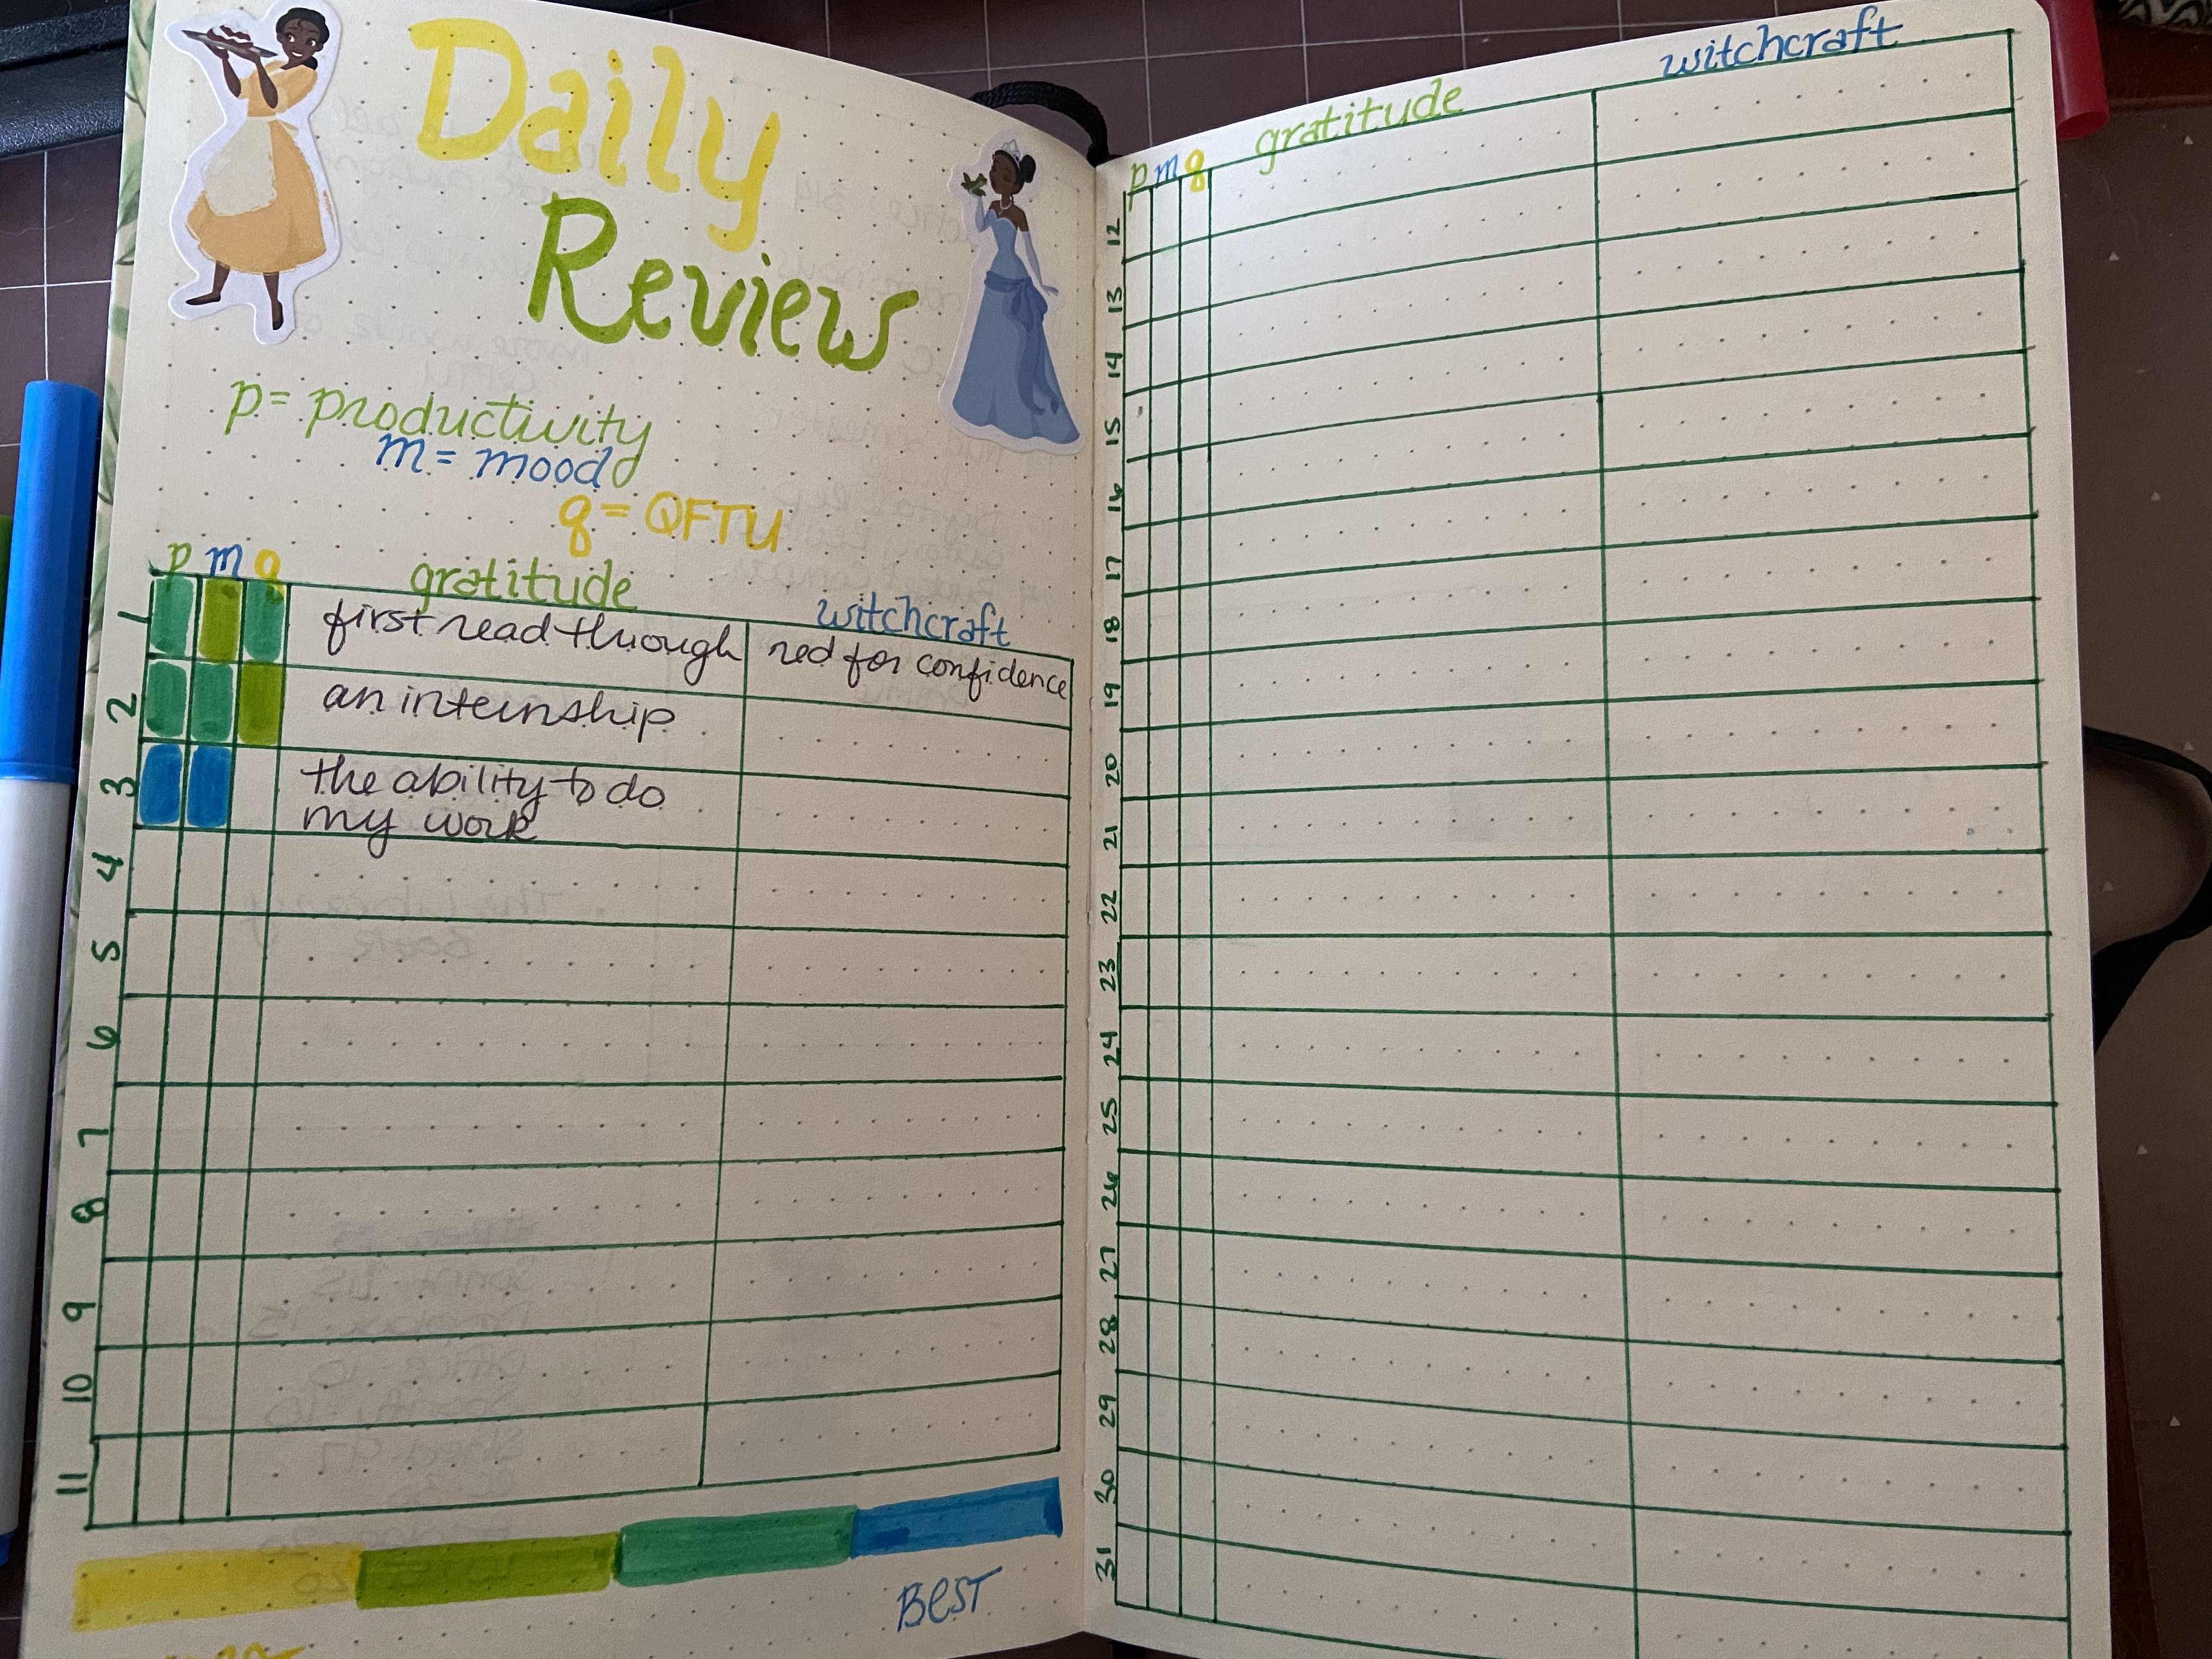 Daily
Review
p = productivity
m = mood
q = QFTU
p m q gratitude witchcraft
1 first read through red for confidence
2 an internship
3 the ability to do
my work
4
5
6
7
8
9
10
11
BEST
p m q gratitude witchcraft
12
13
14
15
16
17
18
19
20
21
22
23
24
25
26
27
28
29
30
31